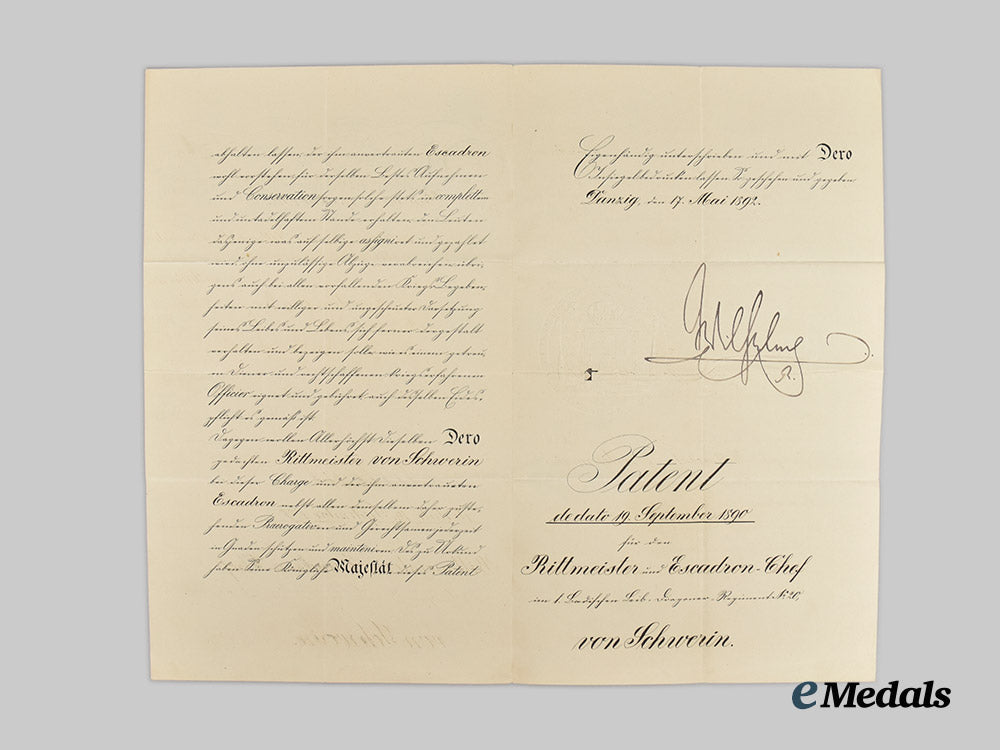 abhalten lassen, der ihm anvertrauten Escadron
wohl vorstehen für derselben Bestes Aufnehmen
und Conservation sorgen solche stets in completten
und untadelhaften Stande erhalten, den Leuten
dasjenige was auf selbige assigniret und gezahlet
wird ohne unzulässige Abzüge verabreichen übri-
gens auch bei allen vorfallenden Kriegs-Begeben-
heiten mit williger und ungescheuter Darsetzung
seines Leibes und Lebens sich ferner dergestalt
verhalten und bezeigen solle wie es einem getreu-
en Diener und rechtschaffenen kriegserfahrenen
Officier eignet und gebühret auch desselben Eides-
pflicht es gemäß ist.
Dagegen wollen Allerhöchst Dieselben Dero
gedachten Rittmeister von Schwerin
bei dieser Charge und der ihm anvertrauten
Escadron nebst allen demselben daher zuste-
henden Praerogativen und Gerechtsamen jederzeit
in Gnaden schützen und mainteniren. Des zu Urkund
haben Seine Königliche Majestät dieses Patent
Eigenhändig unterschrieben und mit Dero
Insiegel bedrucken lassen So geschehen und gegeben
Danzig, den 17. Mai 1892.
Wilhelm
R.
Patent
de dato 19. September 1890
für den
Rittmeister und Escadron-Chef
im 1. Badischen Leib-Dragoner-Regiment No. 20,
von Schwerin.
eMedals